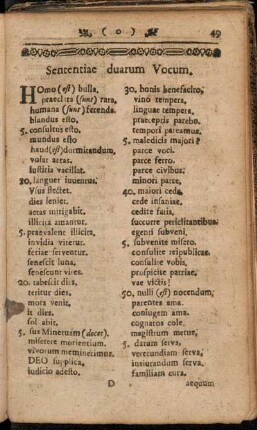 ( o ) 49
Sententiae duarum Vocum.
HOmo (est) bulla.
praeclara (sunt) rara,
humana (sunt) ferenda.
blandus esto,
5. consultus esto,
mundus esto
haud (est) dormitandum,
volat aetas.
iustitia vacillat.
10. languet iuventus.
Vsus flectet.
dies leniet.
aetas mitigabit.
illicita amantur.
5. praevalent illicita,
invidia viretur.
feriae ferventur.
senescit luna,
senescunt vites.
20. tabescit dies,
teritur dies,
mors venit,
it dies.
sol abit,
5. sus Minervam (docet).
misertere morientium.
vivorum meminerimus.
DEO supplica,
iudicio adesto.
30. bonis benefacito,
vino tempera,
linguae tempera,
praeceptis pareto.
tempori pareamus.
5. maledicis majori?
parce voci.
parce ferro.
parce civibus.
minori parce,
40. maiori cede,
cede insaniae.
cedite furia,
succurre periclitantibus.
egenti subveni,
5. subvenite misero.
consulite reipublicae.
consulite vobis,
prospicite patriae,
vae victis!
50. nulli (est) nocendum,
parentes ama.
conjugem ama.
cognatos cole,
magistrum metue,
5. datum serva,
verecundiam serva,
iusiurandum serva,
familiam cura.
D aequum